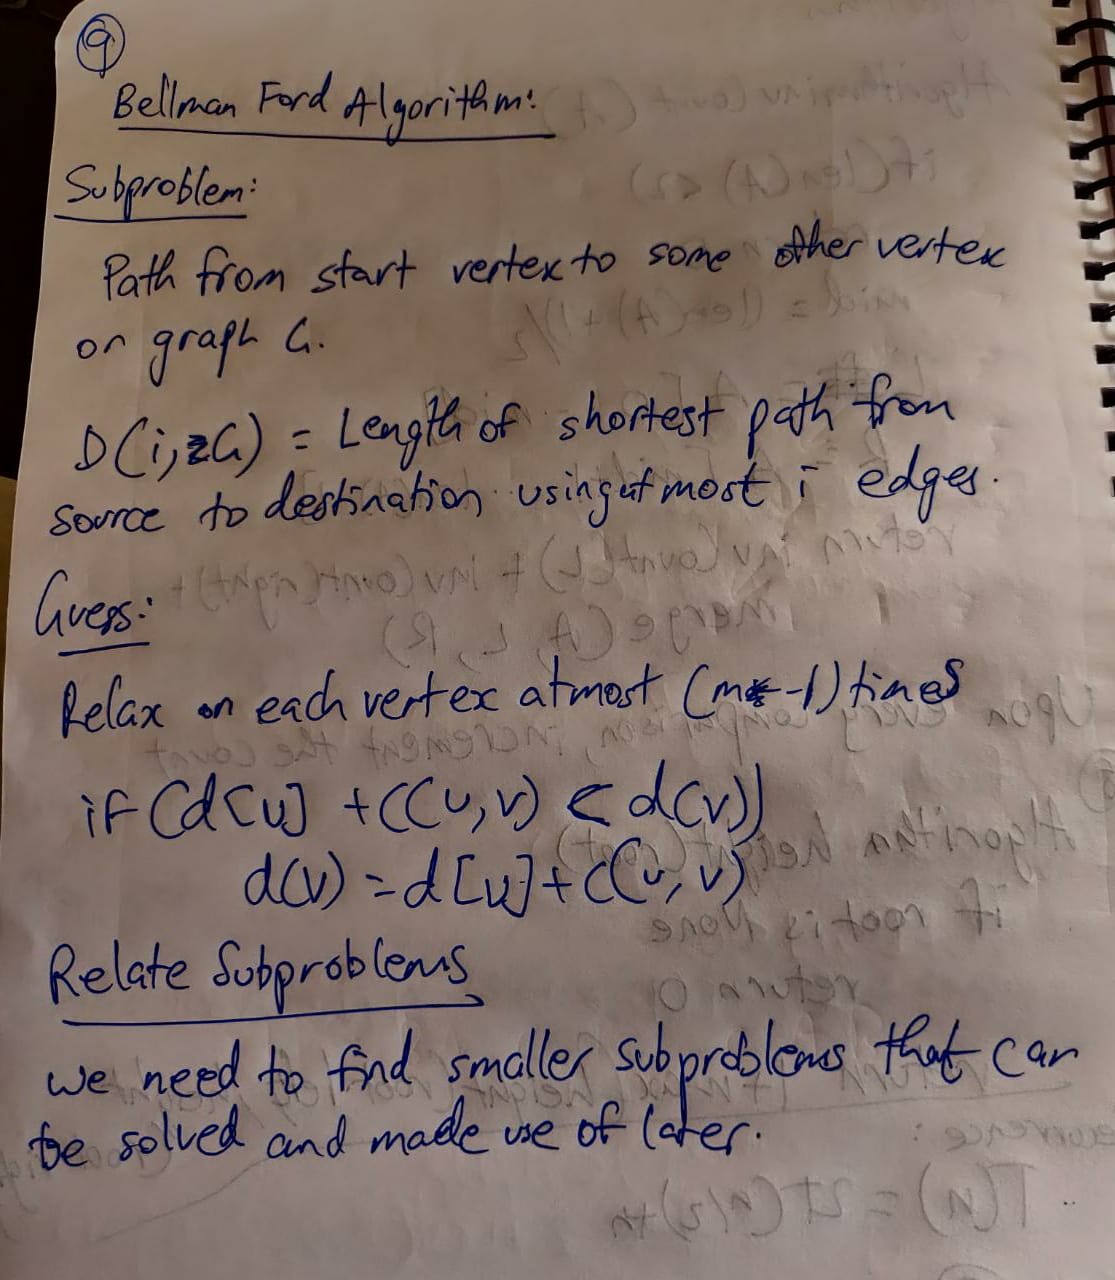 9
Bellman Ford Algorithm:
Subproblem:
Path from start vertex to some other vertex
on graph G.
D(i, G) = Length of shortest path from
source to destination using at most i edges.
Guess:
Relax on each vertex atmost (m-1) times
if (d[u] + c(u,v) < d(v))
d(v) = d[u] + c(u,v)
Relate Subproblems
we need to find smaller subproblems that can
be solved and made use of later.